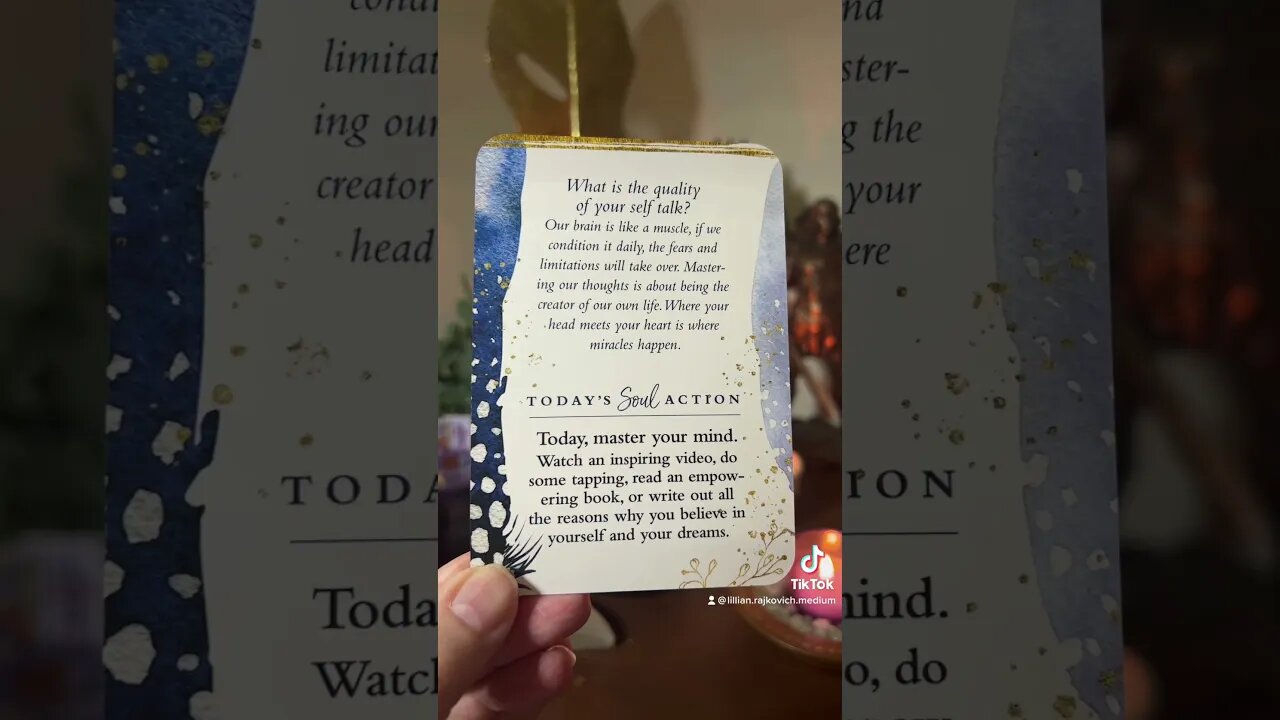 What is the quality
of your self talk?
Our brain is like a muscle, if we
condition it daily, the fears and
limitations will take over. Master-
ing our thoughts is about being the
creator of our own life. Where your
head meets your heart is where
miracles happen.
TODAY'S Soul ACTION
Today, master your mind.
Watch an inspiring video, do
some tapping, read an empow-
ering book, or write out all
the reasons why you believe in
yourself and your dreams.
TikTok
@lillian.rajkovich.medium